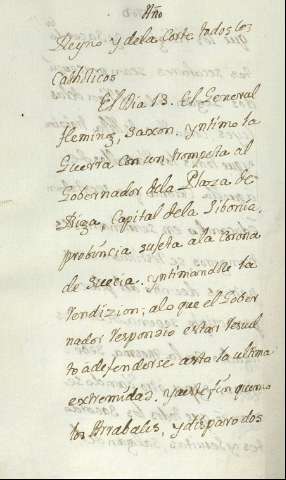 Año
Reyno y dela Corte todos los
Catholicos
El dia 13. El General
fleming, Saxon, yntimo la
Guerra con un trompeta al
Gobernador dela Plaza de
Riga, Capital dela Libonia,
probincia sujeta a la Corona
de Suecia. yntimandle la
Rendizion; alo que el Gober
nador respondio estar resuel
to a defenderse asta la ultima
extremidad, y a este fin quemo
los Arrabales, y disparo dos